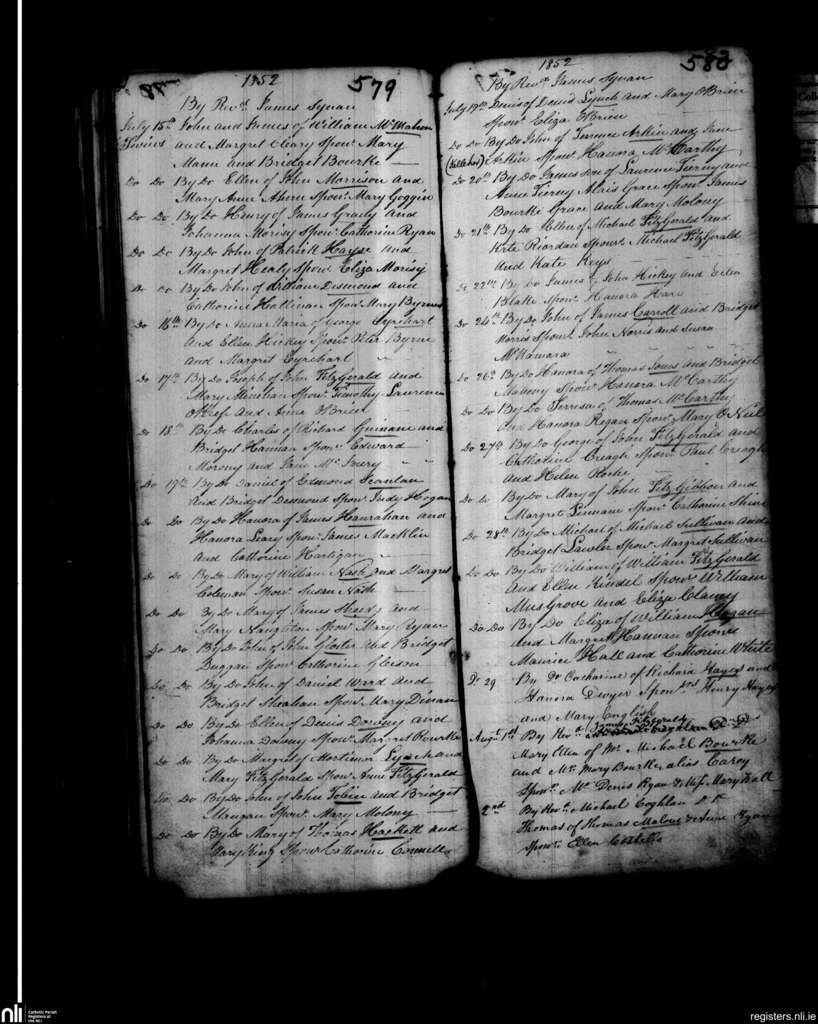 1852
579
By Revd. James Synan
July 15th John and James of William McMahon
Twins and Margret Cleary Spons. Mary
Mann and Bridget Bourke
Do Do By Do Ellen of John Morrison and
Mary Anne Ahern Spons. Mary Goggin
Do Do By Do Henry of James Grady and
Johanna Morisy Spons. Catherin Ryan
Do Do By Do John of Patrick Hayse and
Margret Healy Spons. Eliza Morisy
Do Do By Do John of William Desmond and
Catherine Hallinan Spons. Mary Byrnes
Do 16th By Do Anna Maria of George Eyrehart
and Ellen Hickey Spons. Peter Byrne
and Margrit Eyrehart
Do 17th By Do Joseph of John FitzGerald and
Mary Minihan Spons. Timothy Laurence
OKeef and Anne OBrien
Do 18th By Do Charles of Richard Guinane and
Bridget Hannan Spons. Edward
Morony and Jane Mc
Do 19th By Do Daniel of Edmond Scanlan
and Bridget Desmond Spons. Judy Hogan
Do Do By Do Hanora of James Hanrahan and
Hanora Leary Spons. James Macklin
and Catherine Hartigan
Do Do By Do Mary of William Nash and Margret
Coleman Spons. Susan Nash
Do Do By Do Mary of James and
Mary Naughton Spons. Mary Ryan
Do Do By Do John of John Gloster and Bridget
Duggan Spons. Catherine Gleeson
Do Do By Do John of Daniel Ward and
Bridget Sheahan Spons. Mary Dinan
Do Do By Do Ellen of Denis Downy and
Johanna Downy Spons. Margret Rourke
Do Do By Do Margret of Mortimer Lynch and
Mary FitzGerald Spons. Anne FitzGerald
Do Do By Do John of John Tobin and Bridget
Mangan Spons. Mary Molony
Do Do By Do Mary of Thomas Hackett and
Mary King Spons. Catherine Connell
1852
580
By Revd. James Synan
July 19th Denis of David Lynch and Mary OBrien
Spons. Eliza OBrien
Do Do By Do John of Terence Arkin and Jane
Arkin Spons. Hanora McCarthy
Do 20th By Do James son of Laurence Tierney and
Anne Tierny Alais Grace Spons. James
Bourke Grace and Mary Molony
Do 21st By Do Ellen of Michael FitzGerald and
Kate Riordan Spons. Michael FitzGerald
and Kate Keys
Do 22nd By Do James of John Hickey and Ellen
Blake Spons. Hanora Hare
Do 24th By Do John of James Carroll and Bridget
Norris Spons. John Norris and Susan
McNamara
Do 26th By Do Hanora of Thomas Jones and Bridget
Mahony Spons. Hanora McCarthy
Do Do By Do Terresa of Thomas McCarthy
and Hanora Ryan Spons. Mary ONeil
Do 27th By Do George of John FitzGerald and
Catherine Creagh Spons. Paul Creagh
and Helen Roche
Do Do By Do Mary of John FitzGibbon and
Margret Linnane Spons. Catherine Shine
Do 28th By Do Michael of Michael Sullivan and
Bridget Lawler Spons. Margret Sullivan
Do Do By Do William of William FitzGerald
and Ellen Kindel Spons. William
Musgrove and Eliza Clancy
Do Do By Do Eliza of William Hogan
and Margret Hannan Spons
Maurice Hall and Catherine White
Do 29 By Do Catharine of Richard Hayes and
Hanora Dwyer Sponsors Henry Hayes
and Mary English
Augt. 1st By Revd. James Fitzgerald
Mary Ellen of Mr. Michael Bourke
and Mrs. Mary Bourke alias Carey
Sponrs. Mr. Denis Ryan & Miss Mary Wall
2nd By Revd. Michael Coghlan
Thomas of Thomas Malone & Anne Ryan
Sponrs. Ellen Costello
nli
Catholic Parish
Registers at
the NLI
registers.nli.ie